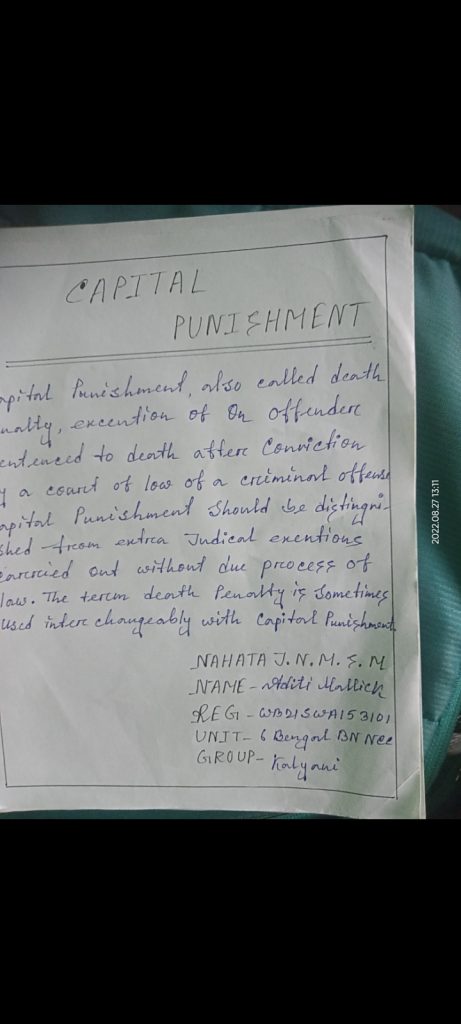 CAPITAL
PUNISHMENT
apital Punishment, also called death
nalty, execution of On offenderc
entenced to death afterc Conviction
y a court of low of a criminal offense
apital Punishment Should be distingui-
shed from extra Judical exentions
carcried out without due process of
law. The tercm death Penalty is Sometimes
used interc changeably with Capital Punishment.
NAHATA J.N.M.S.M
NAME - Aditi Mallick
REG - WB21SWA153101
UNIT - 6 Bengal BN Ncc
GROUP - Kalyani
2022.08.27 13:11